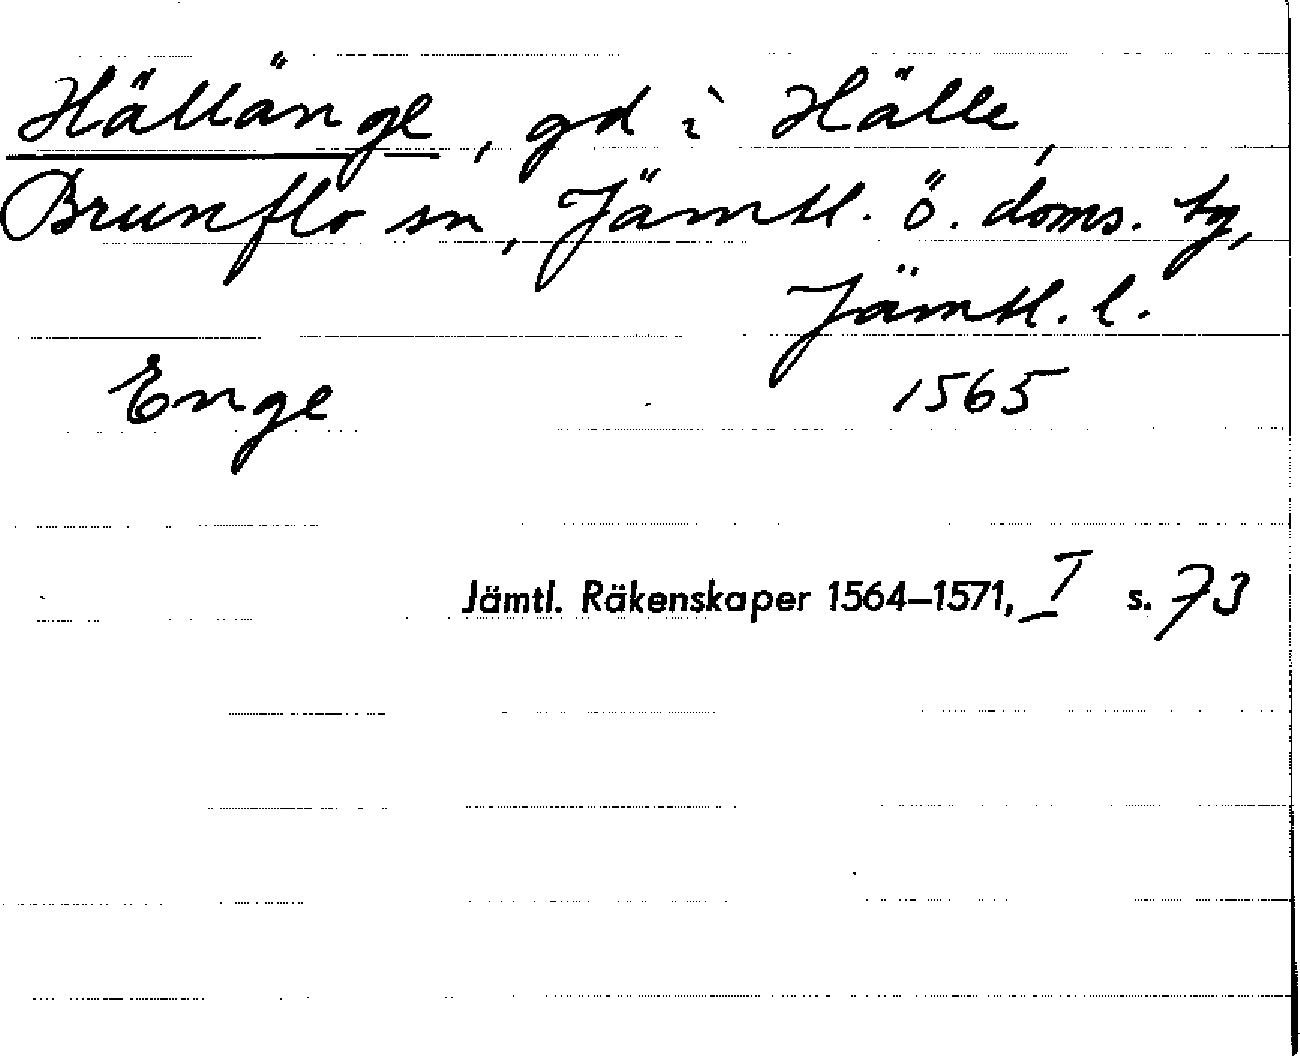 Hällänge, gd i Hälle,
Brunflo sn, Jämtl. ö. doms. tg,
Jämtl. l.
Enge 1565
Jämtl. Räkenskaper 1564–1571, I s. 73